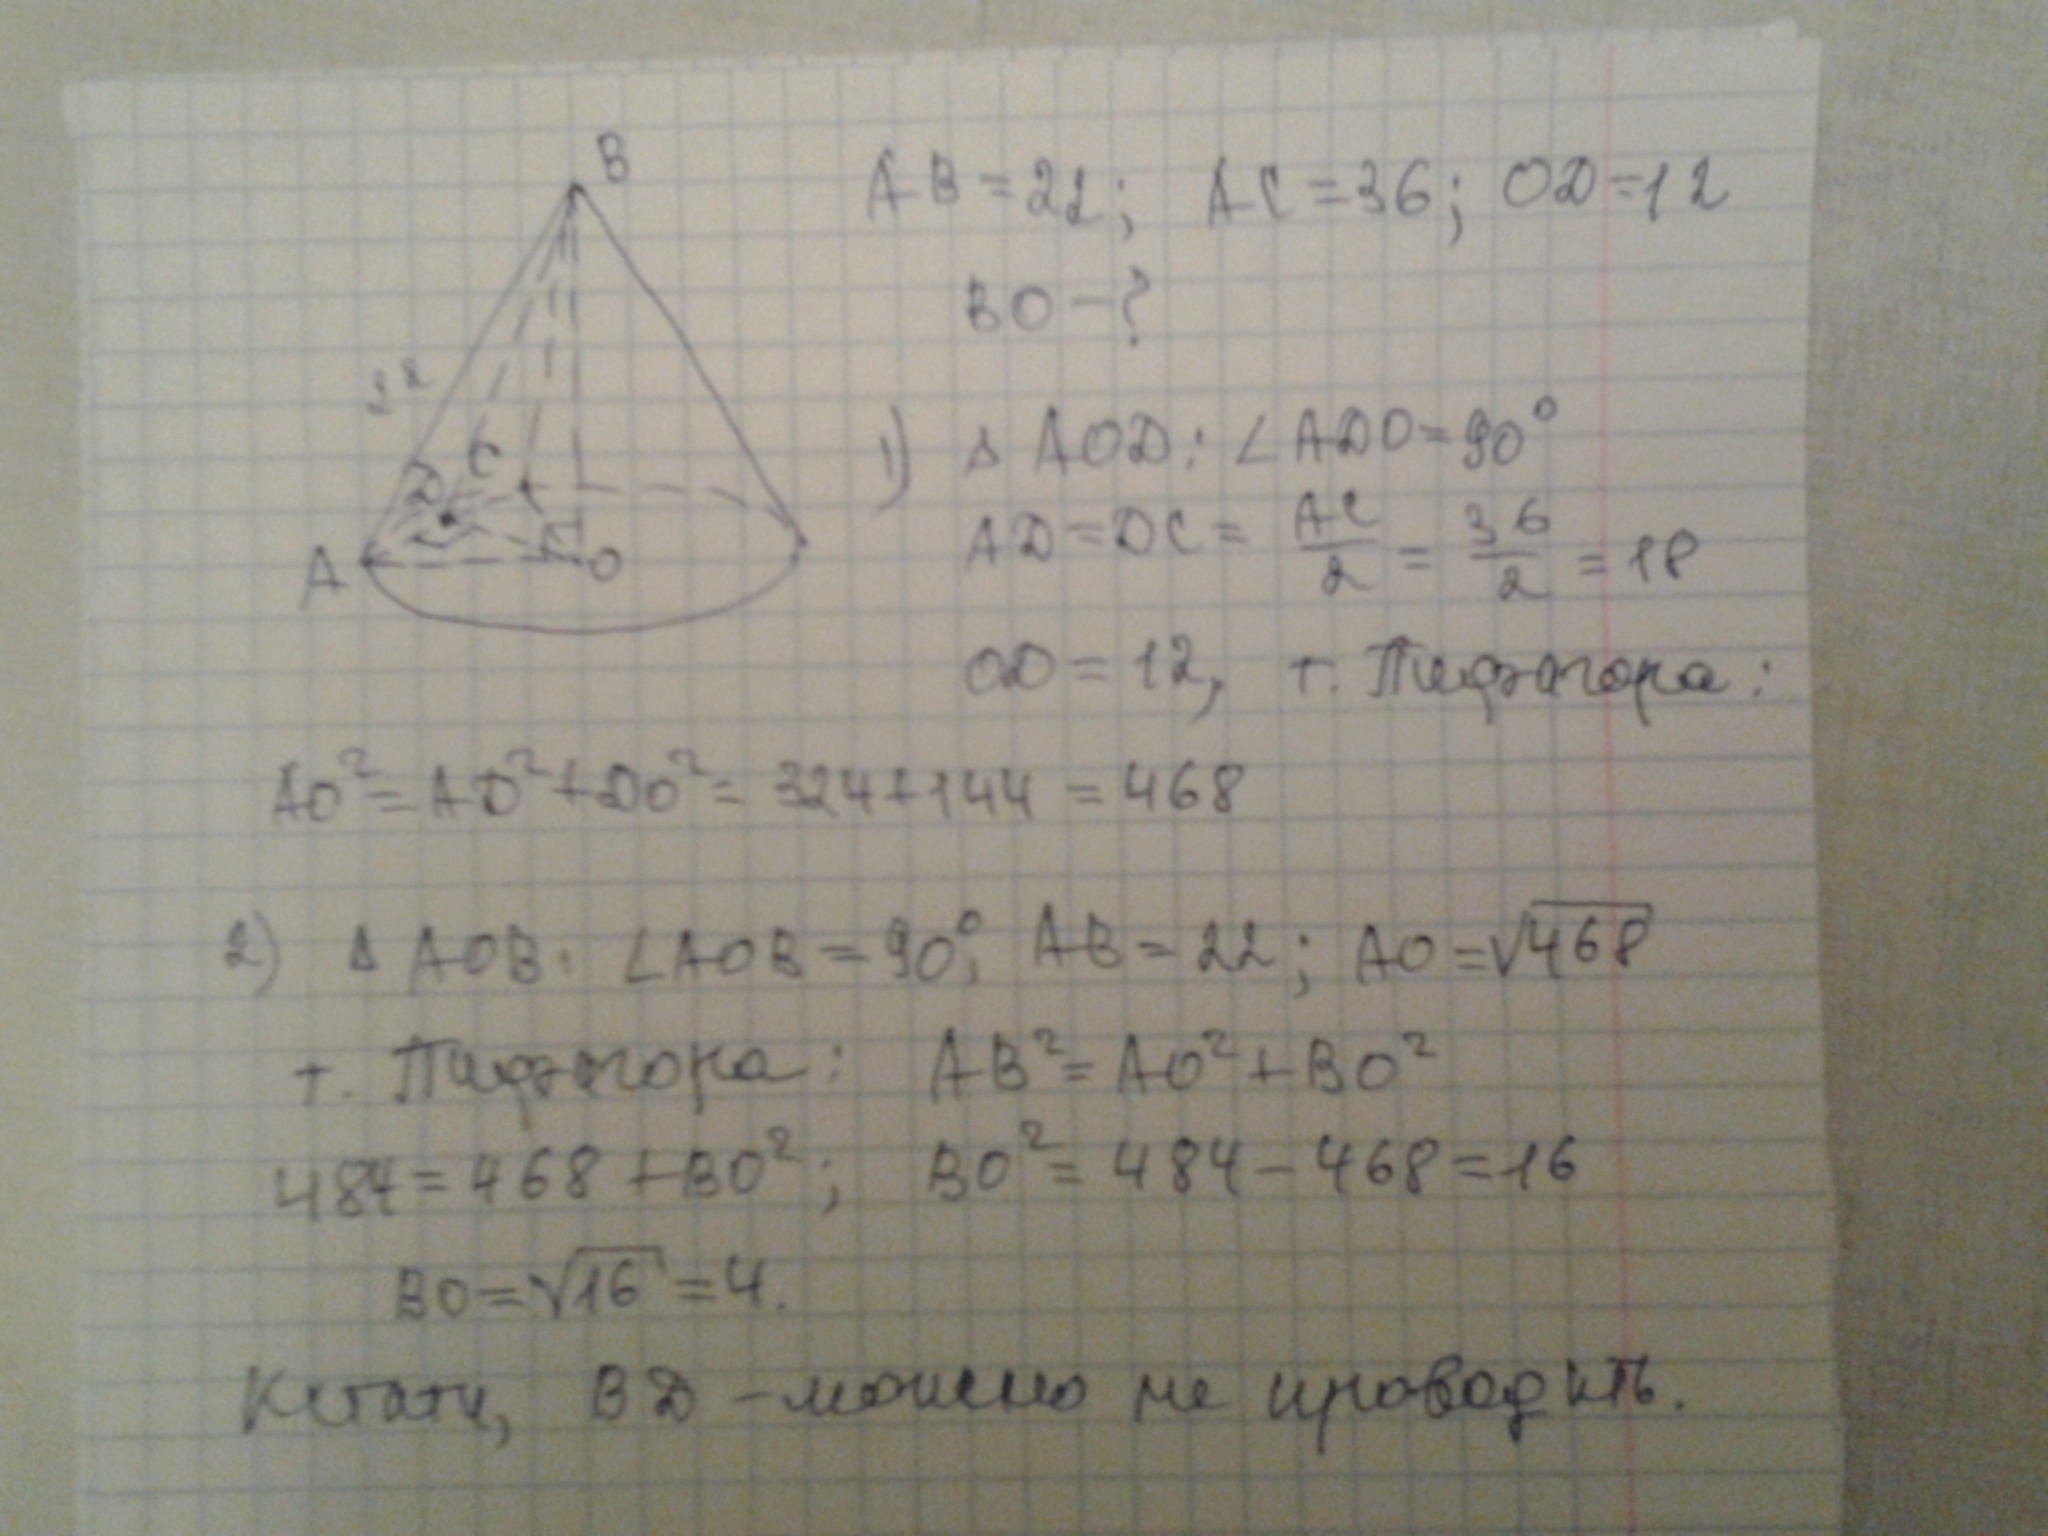 B
AB=22; AC=36; OD=12
BO-?
22
C
D
A
O
1) Δ AOD: ∠ADO=90°
AD=DC= AC/2 = 36/2 =18
OD=12, т. Пифагора:
AO²=AD²+DO²=324+144=468
2) Δ AOB: ∠AOB=90°; AB=22; AO=√468
т. Пифагора: AB²=AO²+BO²
484=468+BO²; BO²=484-468=16
BO=√16=4.
Кстати, BD-можно не проводить.